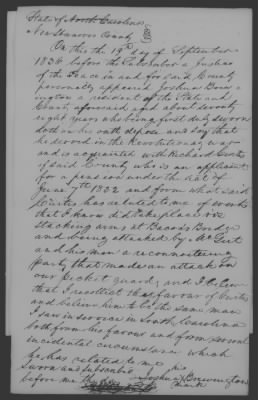 State of North Carolina
New Hanover County
On this the 19th day of September
1836 before the Subscriber a Justice
of the Peace in and for said County
personally appeared Joshua
a resident of the State and
County aforesaid aged about seventy
eight years who being first duly sworn
doth on his oath depose and say that
he served in the Revolutionary war
and is acquainted with Richard
of said County who is an applicant
for a pension under the Act of
June 7th 1832 and from what said
has related to me of events
that I know did take place viz
stacking arms at Bacon's Bridge
and being attacked by
and his men a reconnoitering
party that made an attack on
our Picket guard; and I believe
that I recollect the favour of
and believe him to be the same man
I saw in service in South Carolina
both from his favour and from several
incidental circumstances which
he has related to me
Sworn and subscribed his
before me Joshua
mark